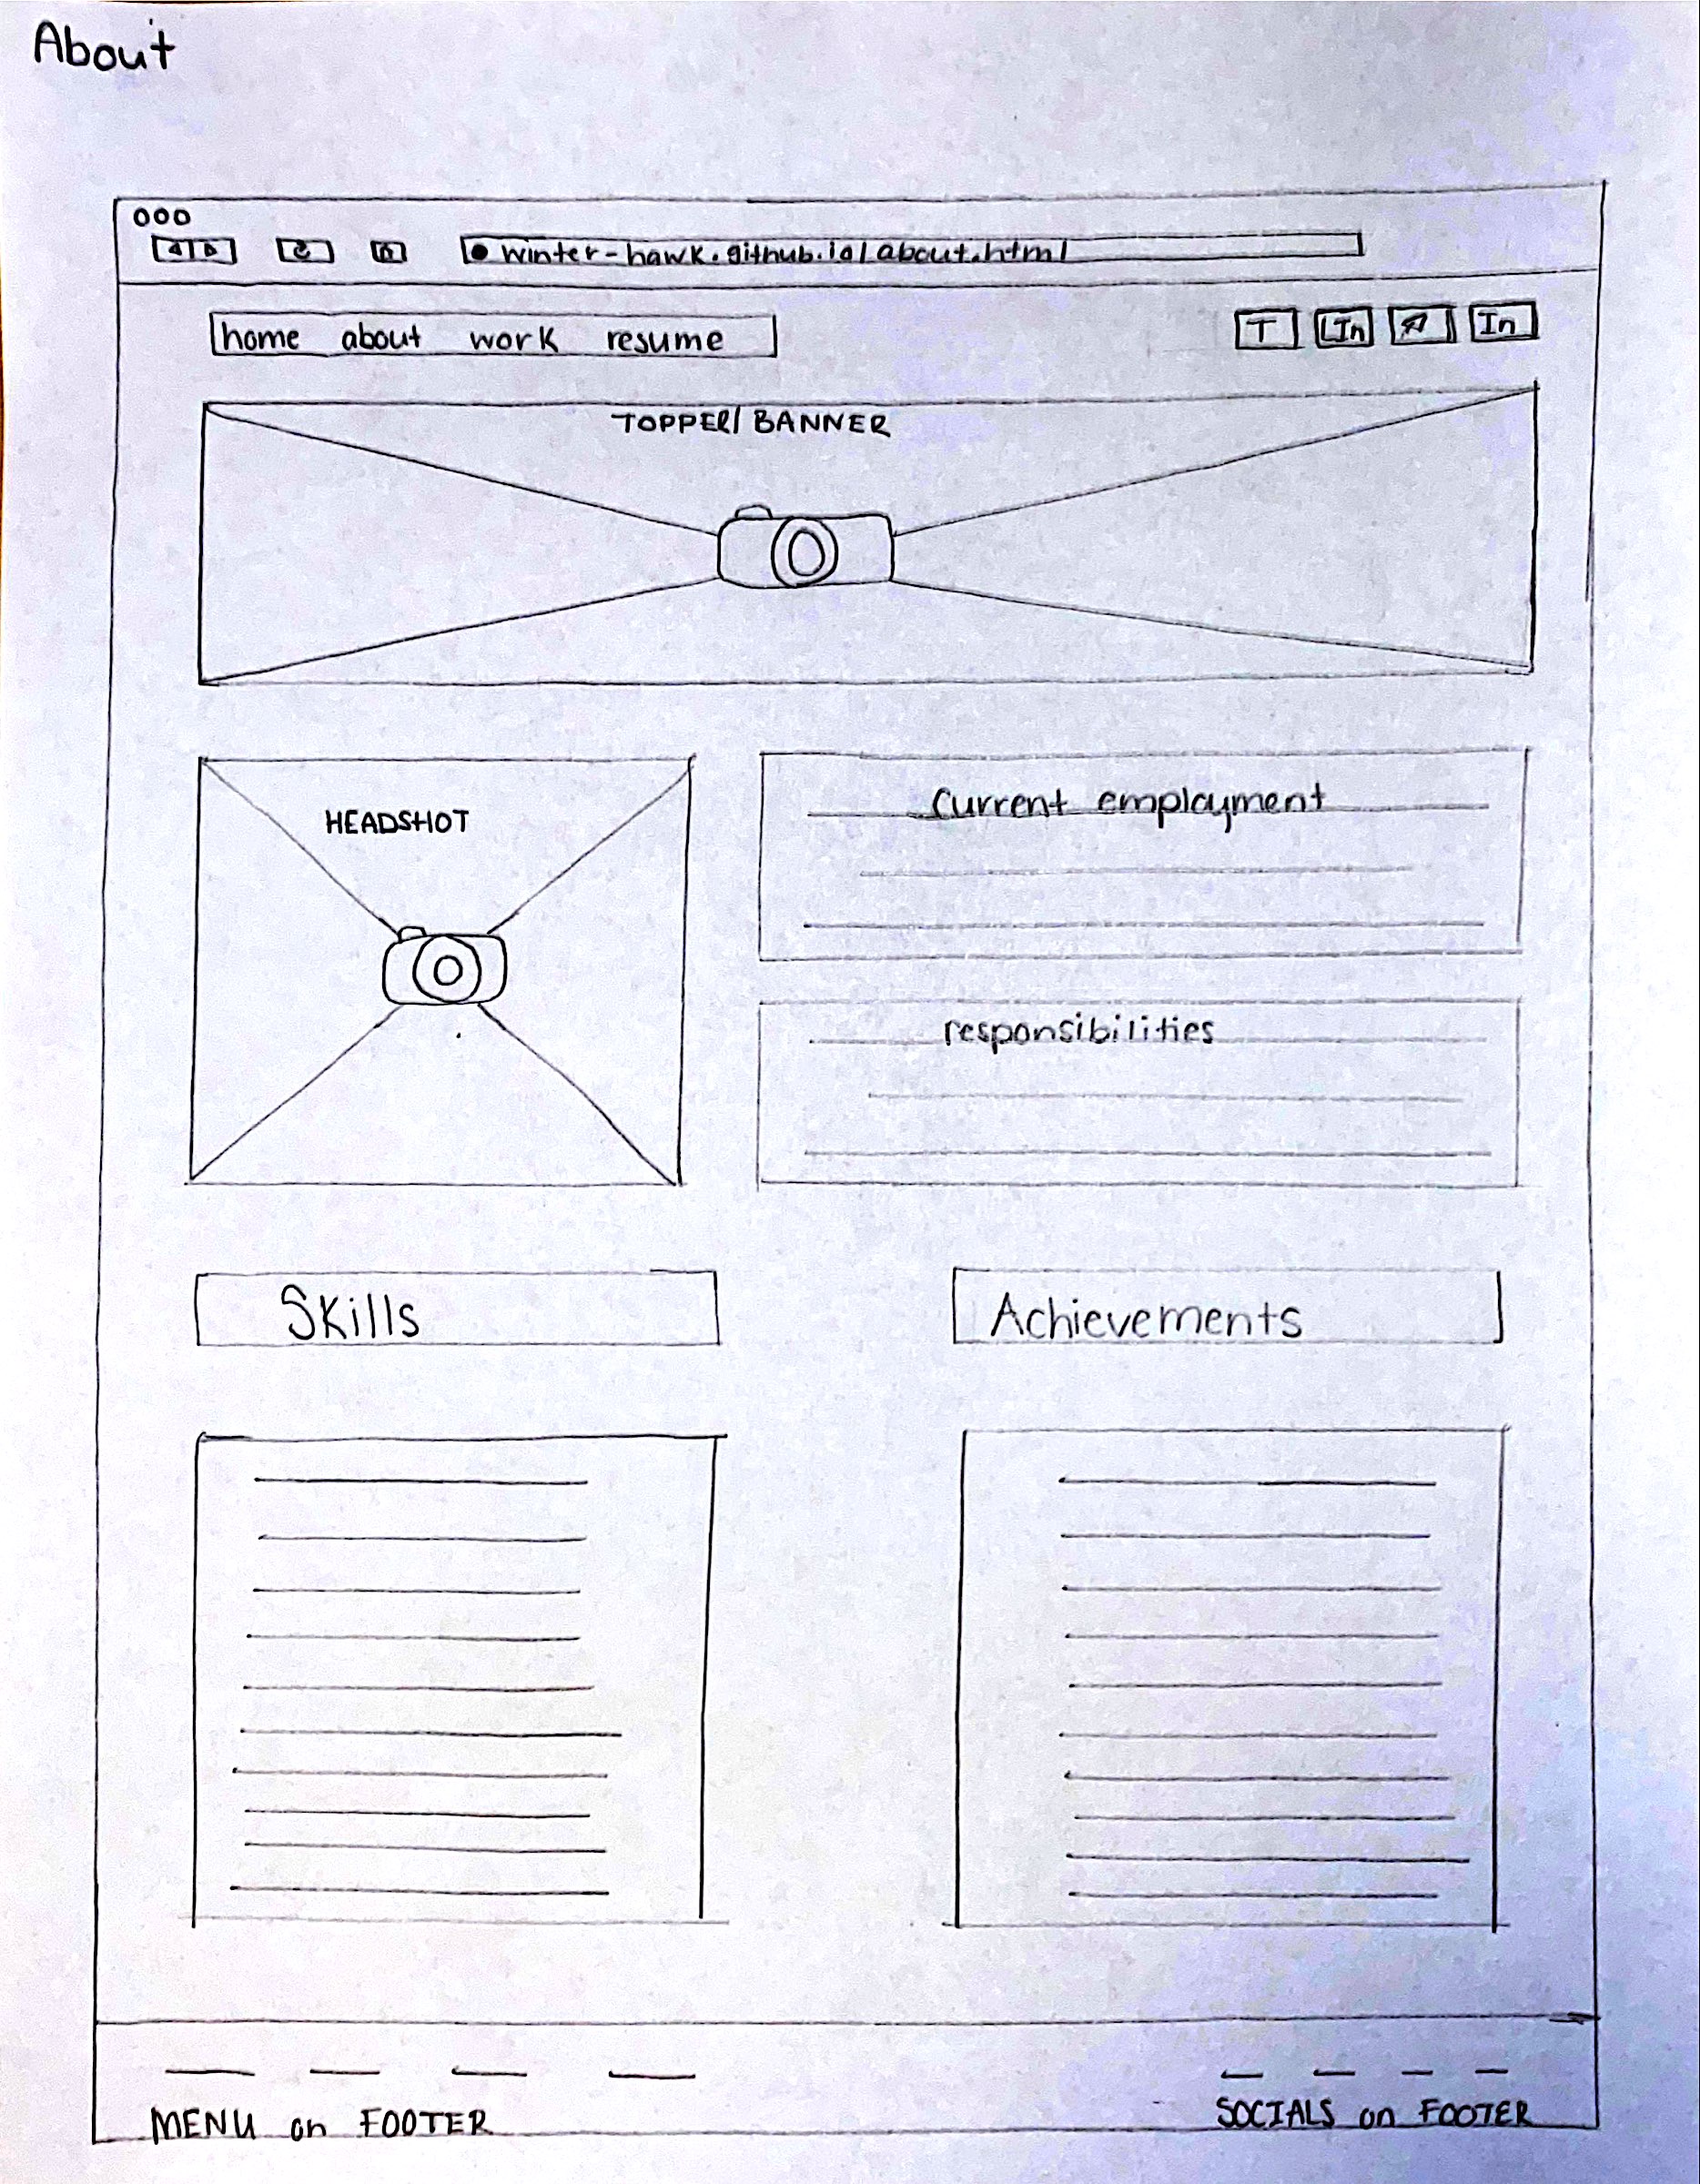 About
winter-hawk.github.io/about.html
home about work resume
T In In
TOPPER/BANNER
HEADSHOT
Current employment
responsibilities
Skills
Achievements
MENU on FOOTER
SOCIALS on FOOTER